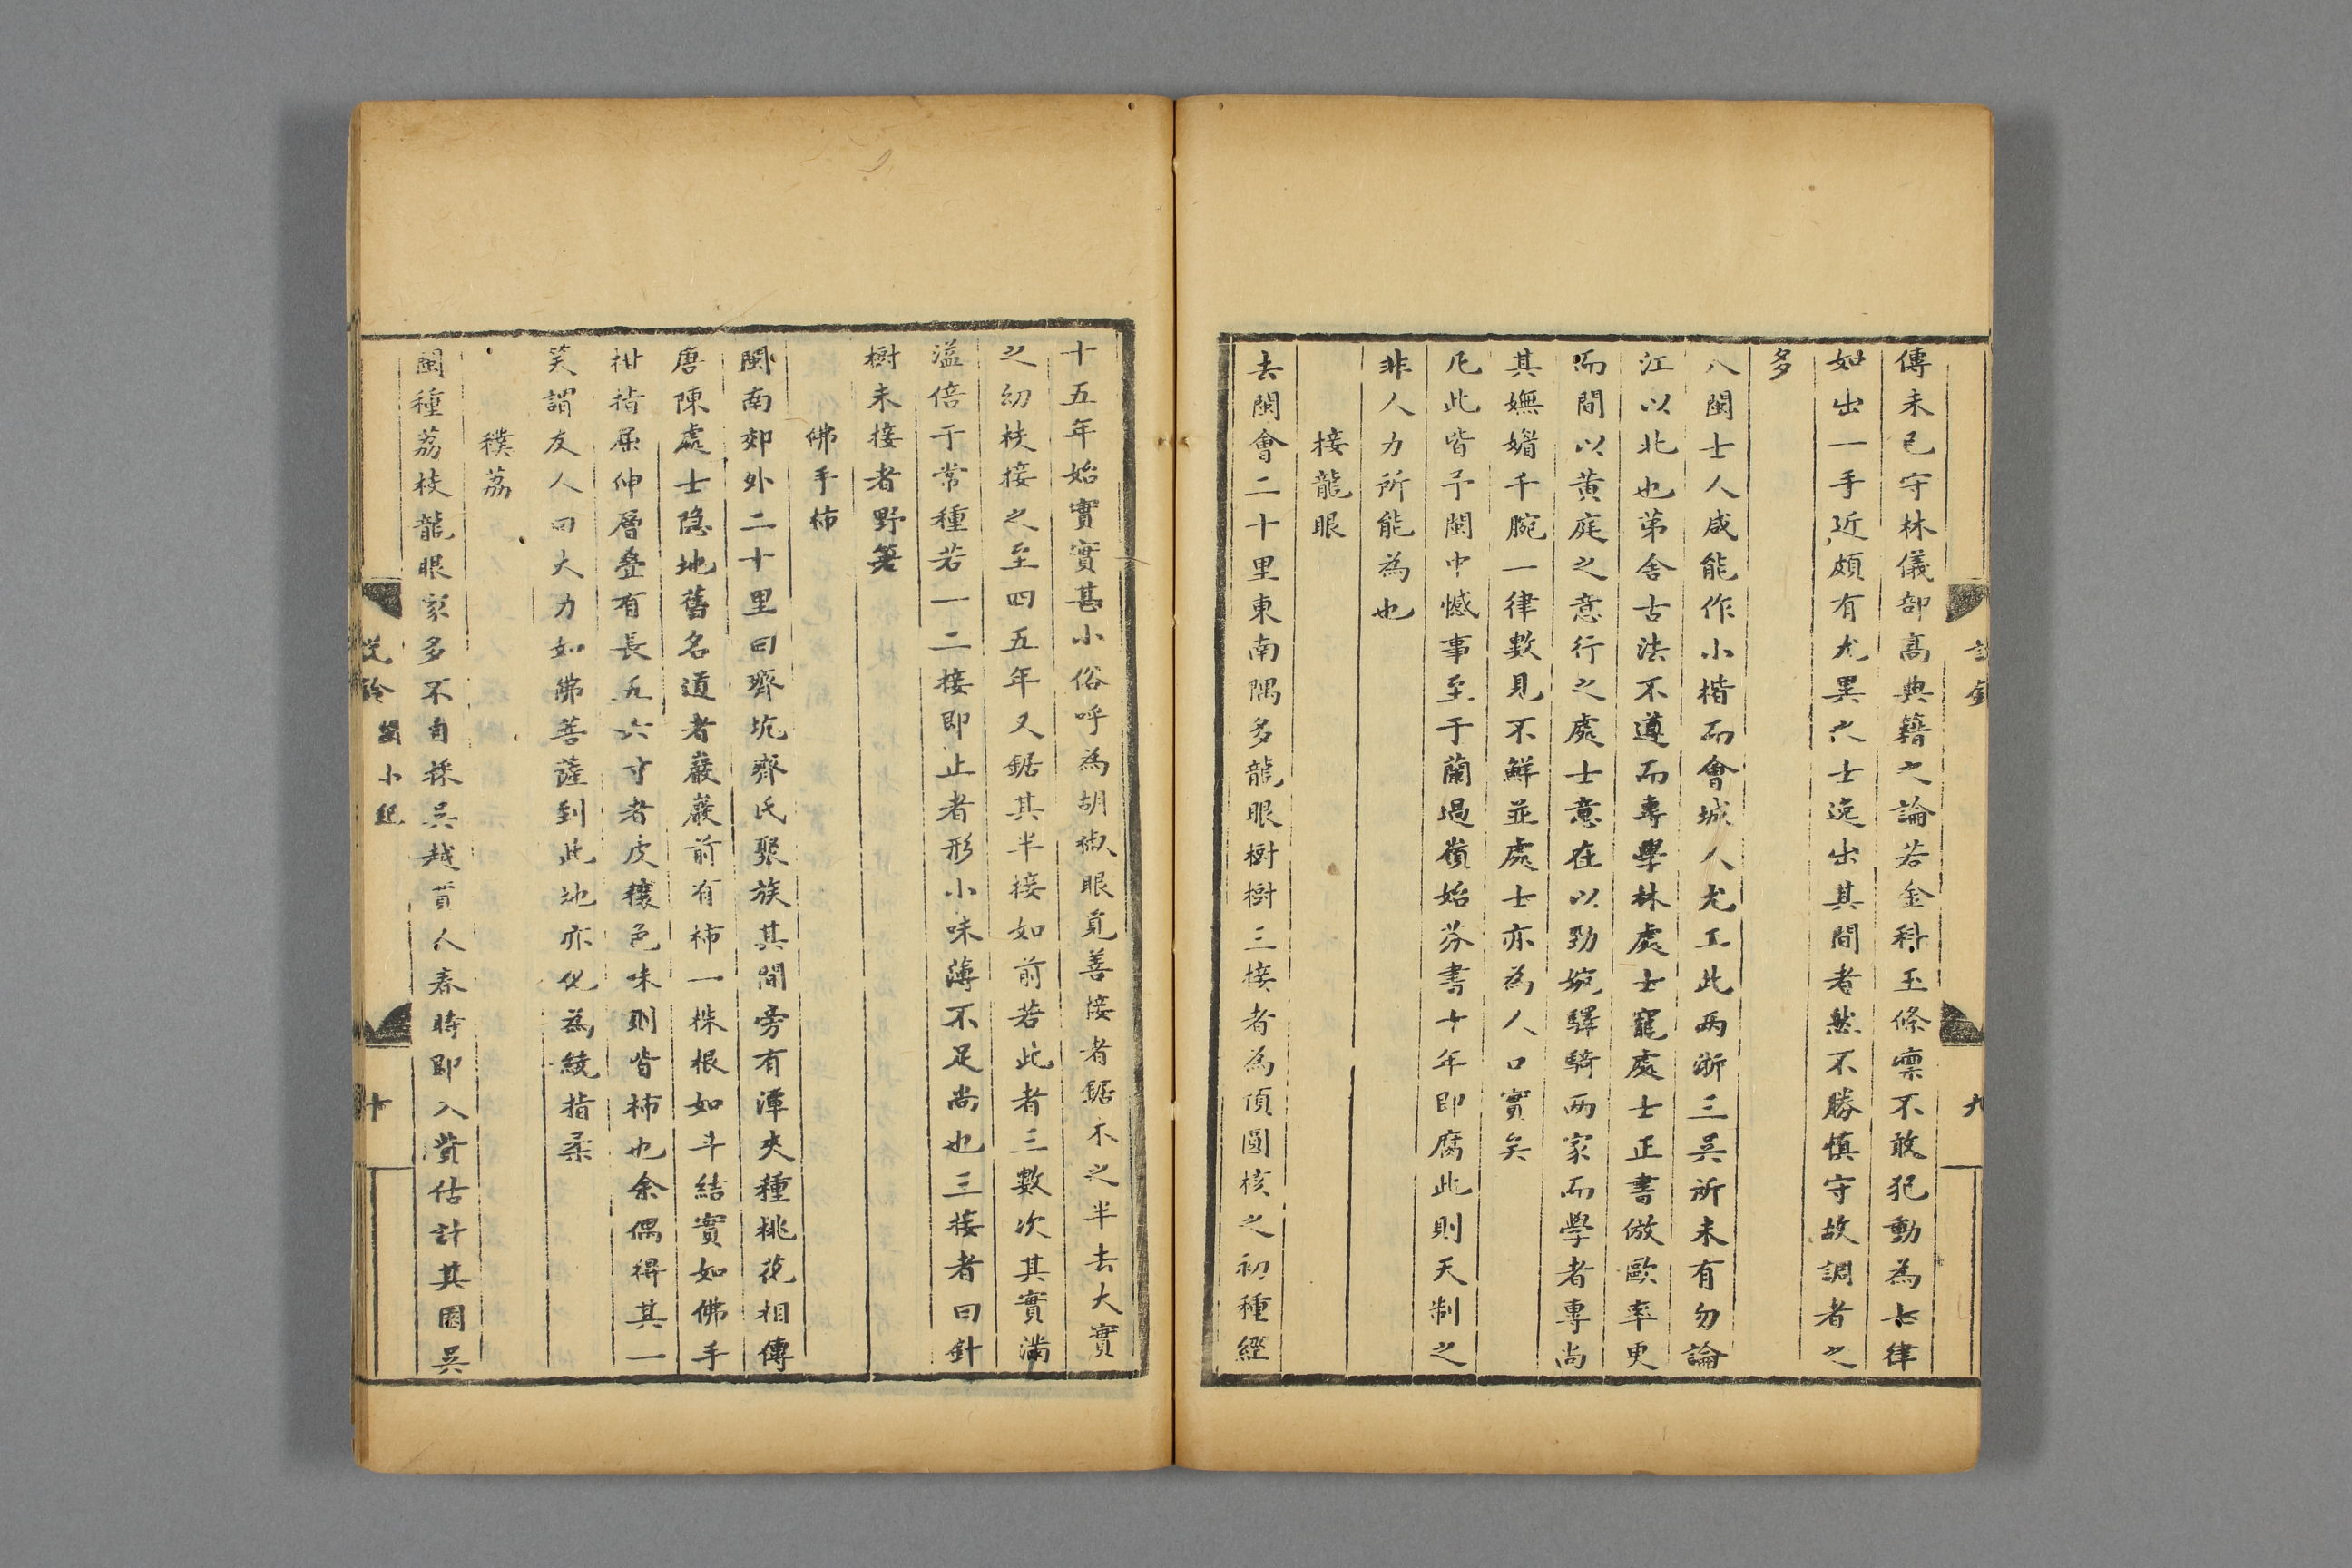 傳未已守林儀部高典籍之論若金科玉條禀不敢犯動為七律
如出一手近頗有尤異之士逸出其間者然不勝慎守故調者之
多
八閩士人咸能作小楷而會城人尤工此兩浙三吳所未有勿論
江以北也第舍古法不遵而專學林處士寵處士正書倣歐率更
而間以黄庭之意行之處士意在以勁婉驛騎兩家而學者專尚
其嫵媚千腕一律數見不鮮並處士亦為人口實矣
凡此皆予閩中憾事至于蘭過嶺始芬書十年即腐此則天制之
非人力所能為也
接龍眼
去閩會二十里東南隅多龍眼樹樹三接者為頂圓核之初種經
十五年始實實甚小俗呼為胡椒眼覓善接者鋸木之半去大實
之幼枝接之至四五年又鋸其半接如前若此者三數次其實滿
溢倍于常種若一二接即止者形小味薄不足尚也三接者曰針
樹未接者野笺
佛手柿
閩南郊外二十里曰齊坑齊氏聚族其間旁有潭夾種桃花相傳
唐陳處士隱地舊名道者巖巖前有柿一株根如斗結實如佛手
柑指屈伸層叠有長五六寸者皮穰色味則皆柿也余偶得其一
笑謂友人曰大力如佛菩薩到此地亦化為繞指柔
穙荔
閩種荔枝龍眼家多不自採吳越賈人春時即入貲估計其園吳
説鈴 閩小紀
十
九